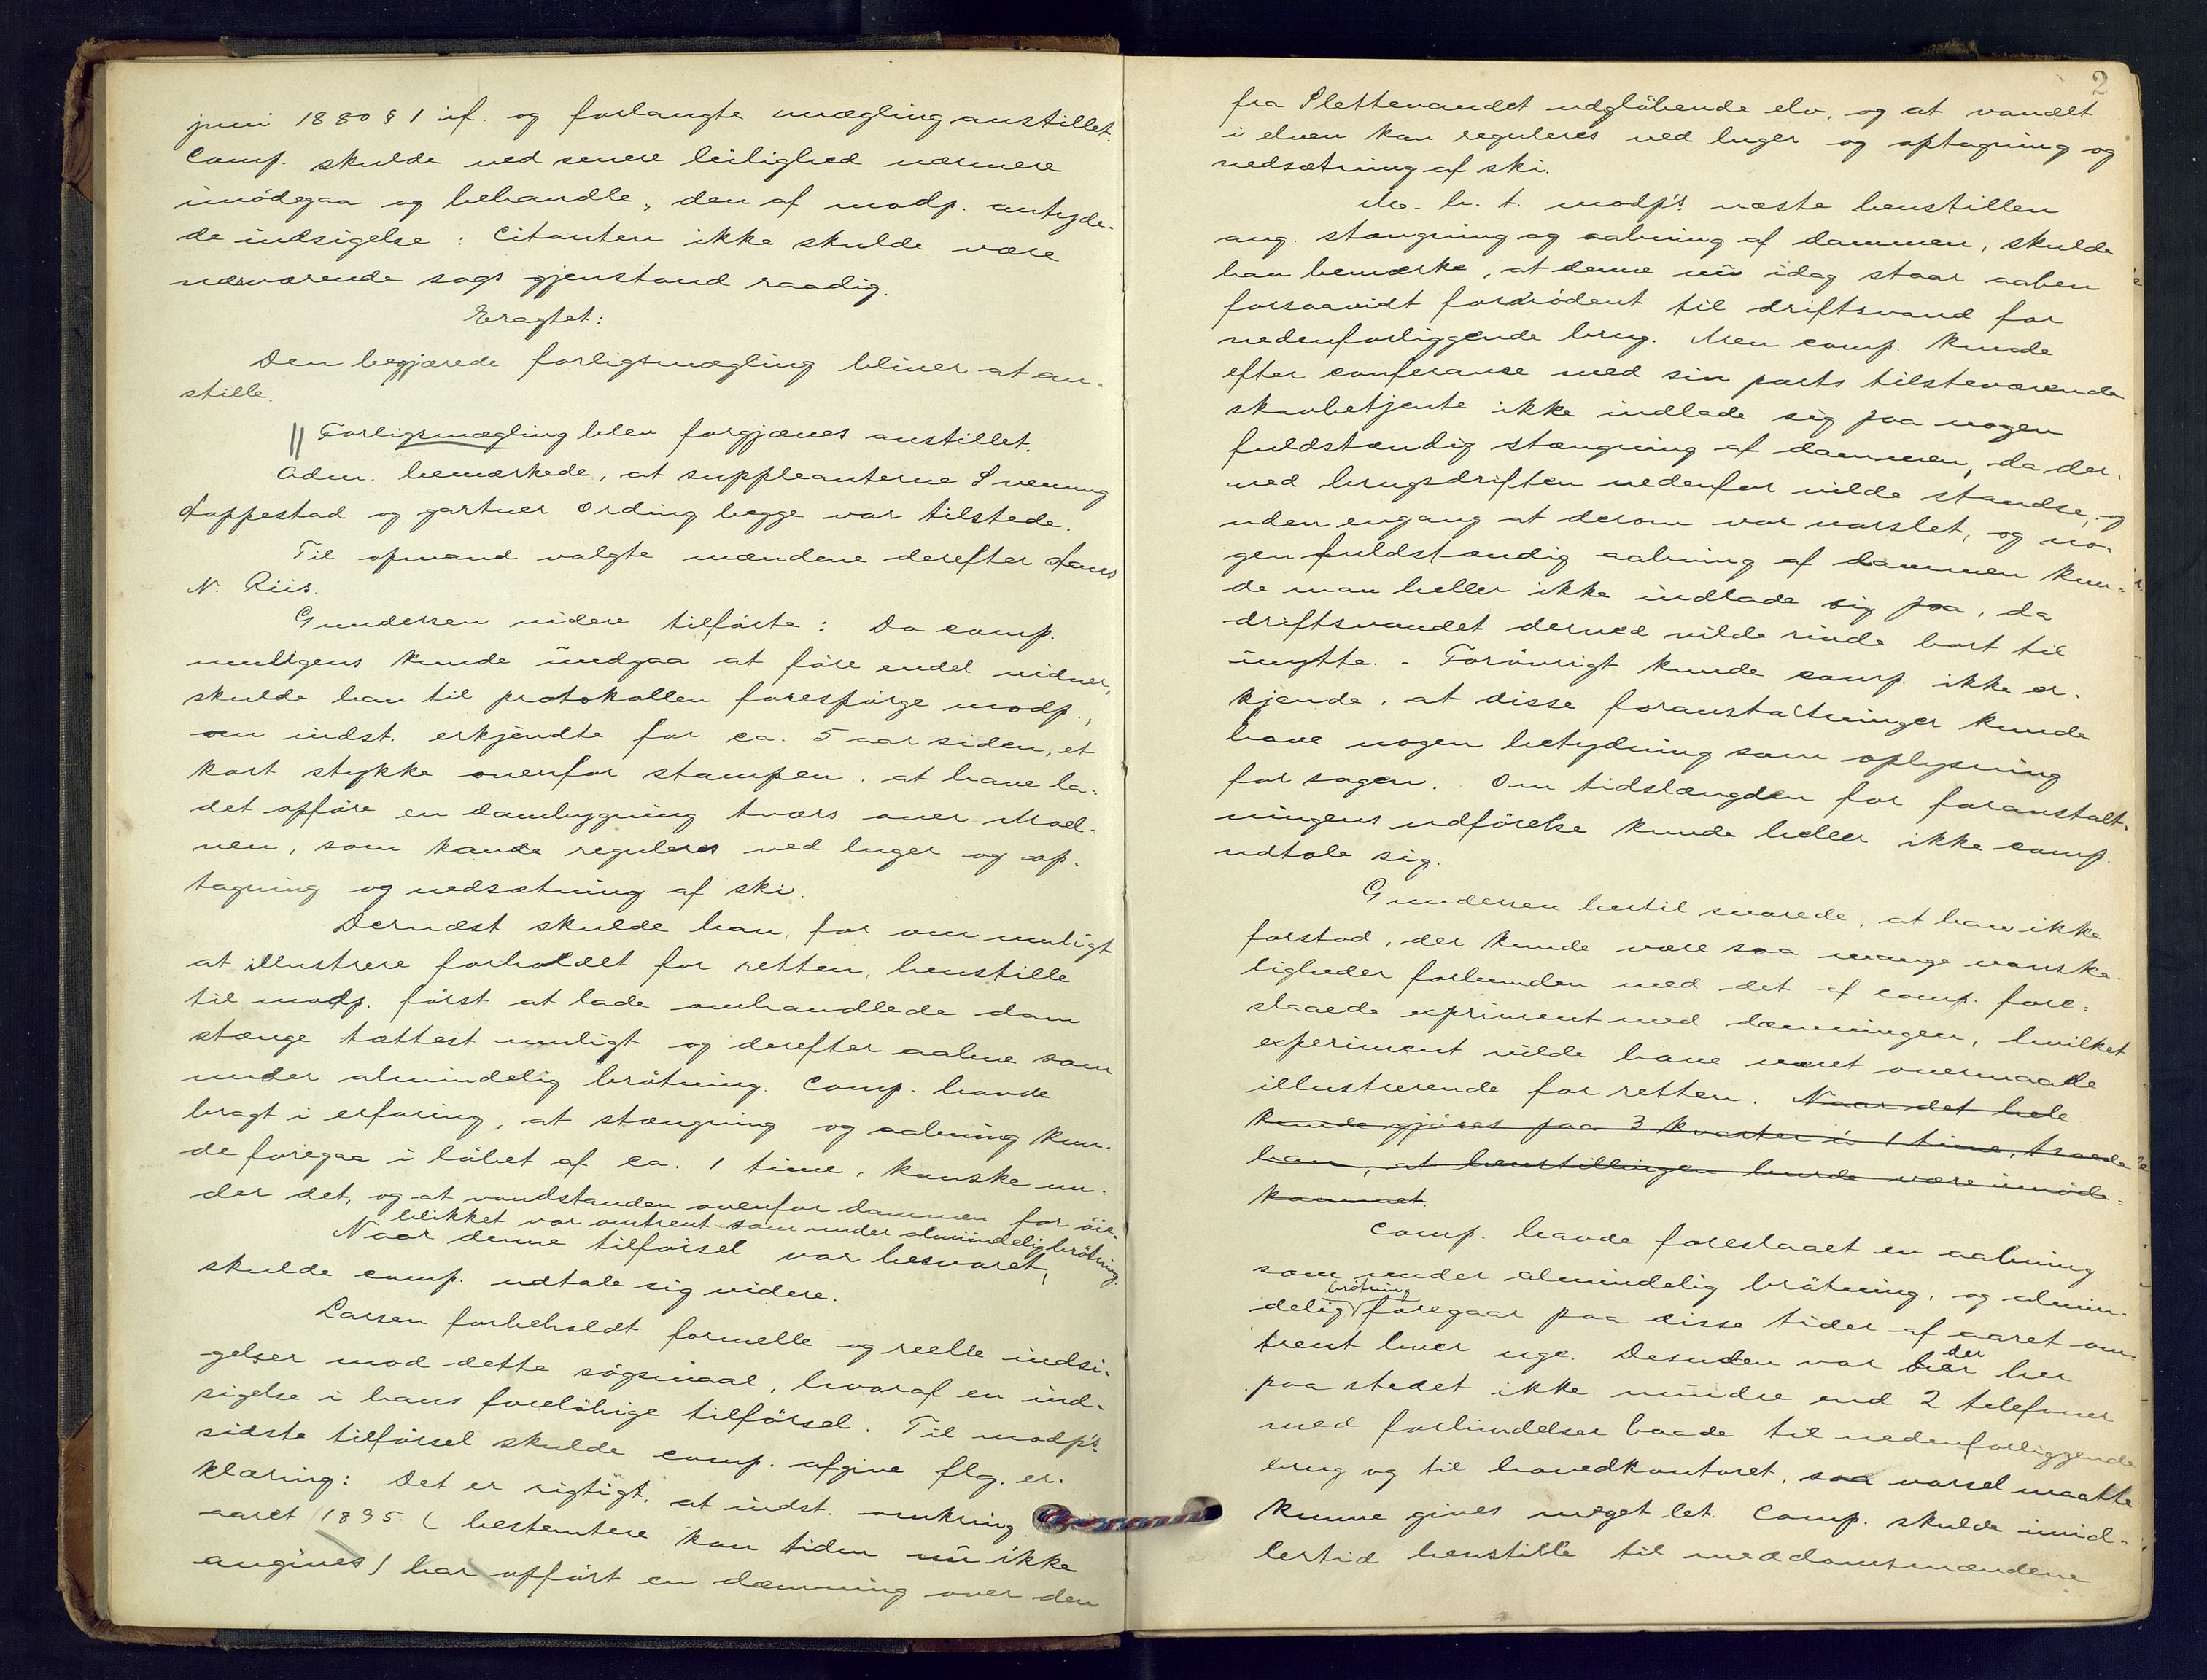 juni 1880 § 1 if. og forlangte mægling anstillet.
Comp. skulde ved senere leilighed nærmere
imödegaa og behandle, den af modp. antyde-
de indsigelse: Citanten ikke skulde være
nærværende sags gjenstand raadig.
Eragtet:
Den begjærede forligsmægling bliver at an-
stille.
|| Forligsmægling blev forgjæves anstillet.
Adm. bemærkede, at suppleanterne Svenung
Hoppestad og gartner Ording begge var tilstede.
Til opmand valgte mændene derefter Hans
N. Riis.
Gundersen videre tilförte: Da comp.
muligens kunde undgaa at före endel vidner,
skulde han til protokollen forespörge modp.,
om indst. erkjendte for ca. 5 aar siden, et
kort stykke ovenfor stampen, at have la-
det opföre en dambygning tværs over Moel-
ven, som kunde reguleres ved luger og op-
tagning og nedsætning af ski.
Dernæst skulde han, for om muligt
at illustrere forholdet for retten, henstille
til modp. först at lade omhandlede dam
stænge tættest muligt og derefter aabne som
under almindelig brötning. Comp. havde
bragt i erfaring, at stængning og aabning kun-
de foregaa i löbet af ca. 1 time, kanske un-
der det, og at vandstanden ovenfor dammen for öie-
blikket var omtrent som under almindelig brötning.
Naar denne tilförsel var besvaret,
skulde comp. udtale sig videre.
Larsen forbeholdt formelle og reelle indsi-
gelser mod dette sögsmaal, hvoraf en ind-
sigelse i hans forelöbige tilförsel. Til modp's
sidste tilförsel skulde comp. afgive flg. er-
klæring: Det er rigtigt, at indst. omkring
aaret 1895 (bestemtere kan tiden nu ikke
angives) har opfört en dæmning over den
2
fra Slettevandet udglöbende elv, og at vandet
i elven kan reguleres ved luger og optagning og
nedsætning af ski.
M. h. t. modp's næste henstillen
ang. stængning og aabning af dammen, skulde
han bemærke, at denne nu idag staar aaben
forsaavidt fornödent til driftsvand for
nedenforliggende brug. Men comp. kunde
efter conferance med sin parts tilstedeværende
skovbetjente ikke indlade sig paa nogen
fuldstændig stængning af dammen, da der-
ved brugsdriften nedenfor vilde standse, og
uden engang at derom var varslet, og no-
gen fuldstændig aabning af dammen kun-
de man heller ikke indlade sig paa, da
driftsvandet derved vilde rinde bort til
unytte. - Forövrigt kunde comp. ikke er-
kjende, at disse foranstaltninger kunde
have nogen betydning som oplysning
for sagen. Om tidslængden for foranstalt-
ningens udförelse kunde heller ikke comp.
udtale sig.
Gundersen hertil svarede, at han ikke
forstod, der kunde være saa mange vanske-
ligheder forbunden med det af comp. fore-
slaaede expriment med dæmningen, hvilket
experiment vilde have været overmaade
illustrerende for retten. Naar det hele
kunde gjöres paa 3 kvarter á 1 time, troede
han, at henstillingen burde være imöde-
kommet.
Comp. havde foreslaaet en aabning
som under almindelig brötning, og almin-
delig brötning foregaar paa disse tider af aaret om-
trent hver uge. Desuden var der her
paa stedet ikke mindre end 2 telefoner
med forbindelser baade til nedenforliggende
brug og til hovedkontoret, saa varsel maatte
kunne gives meget let. Comp. skulde imid-
lertid henstille til meddomsmændene